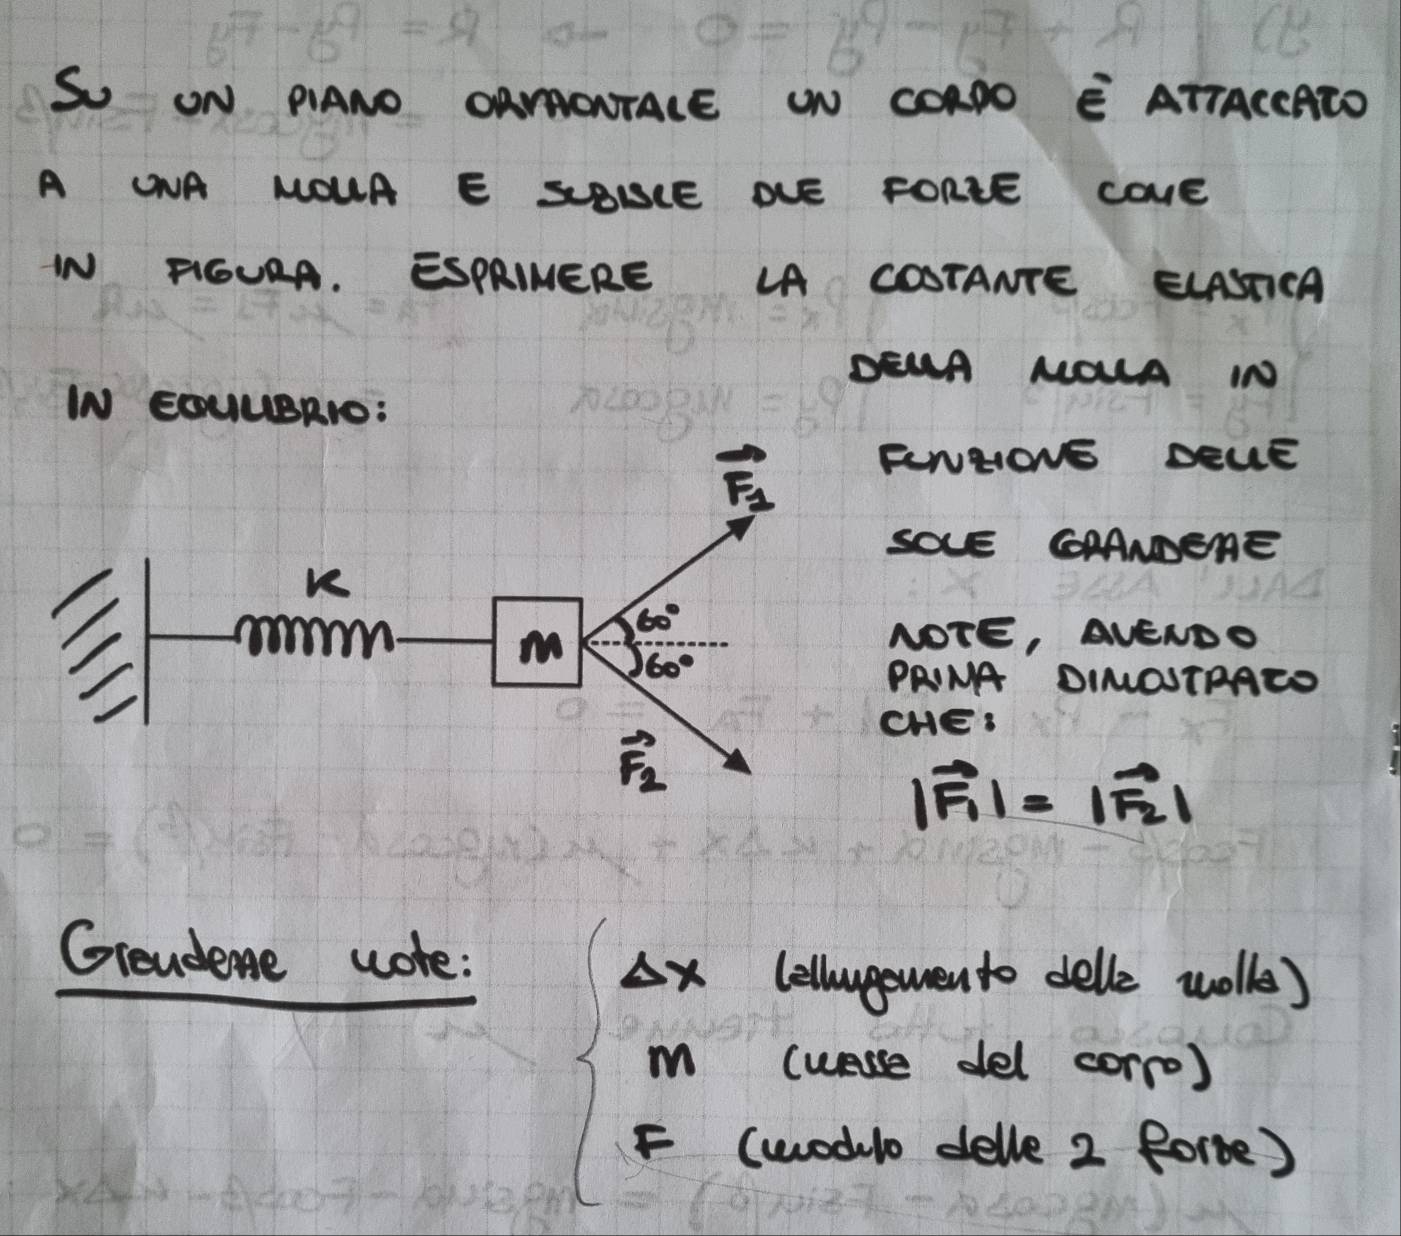 SU UN PIANO ORIZZONTALE UN CORPO È ATTACCATO
A UNA MOLLA E SUBISCE DUE FORZE COME
IN FIGURA. ESPRIMERE LA COSTANTE ELASTICA
DELLA MOLLA IN
IN EQUILIBRIO:
FUNZIONE DELLE
F₁
SOLE GRANDEZZE
K
60°
NOTE, AVENDO
m
60°
PRIMA DIMOSTRATO
CHE:
F₂
|F₁| = |F₂|
Grandezze note:
Δx (allungamento della molla)
m (massa del corpo)
F (modulo delle 2 forze)